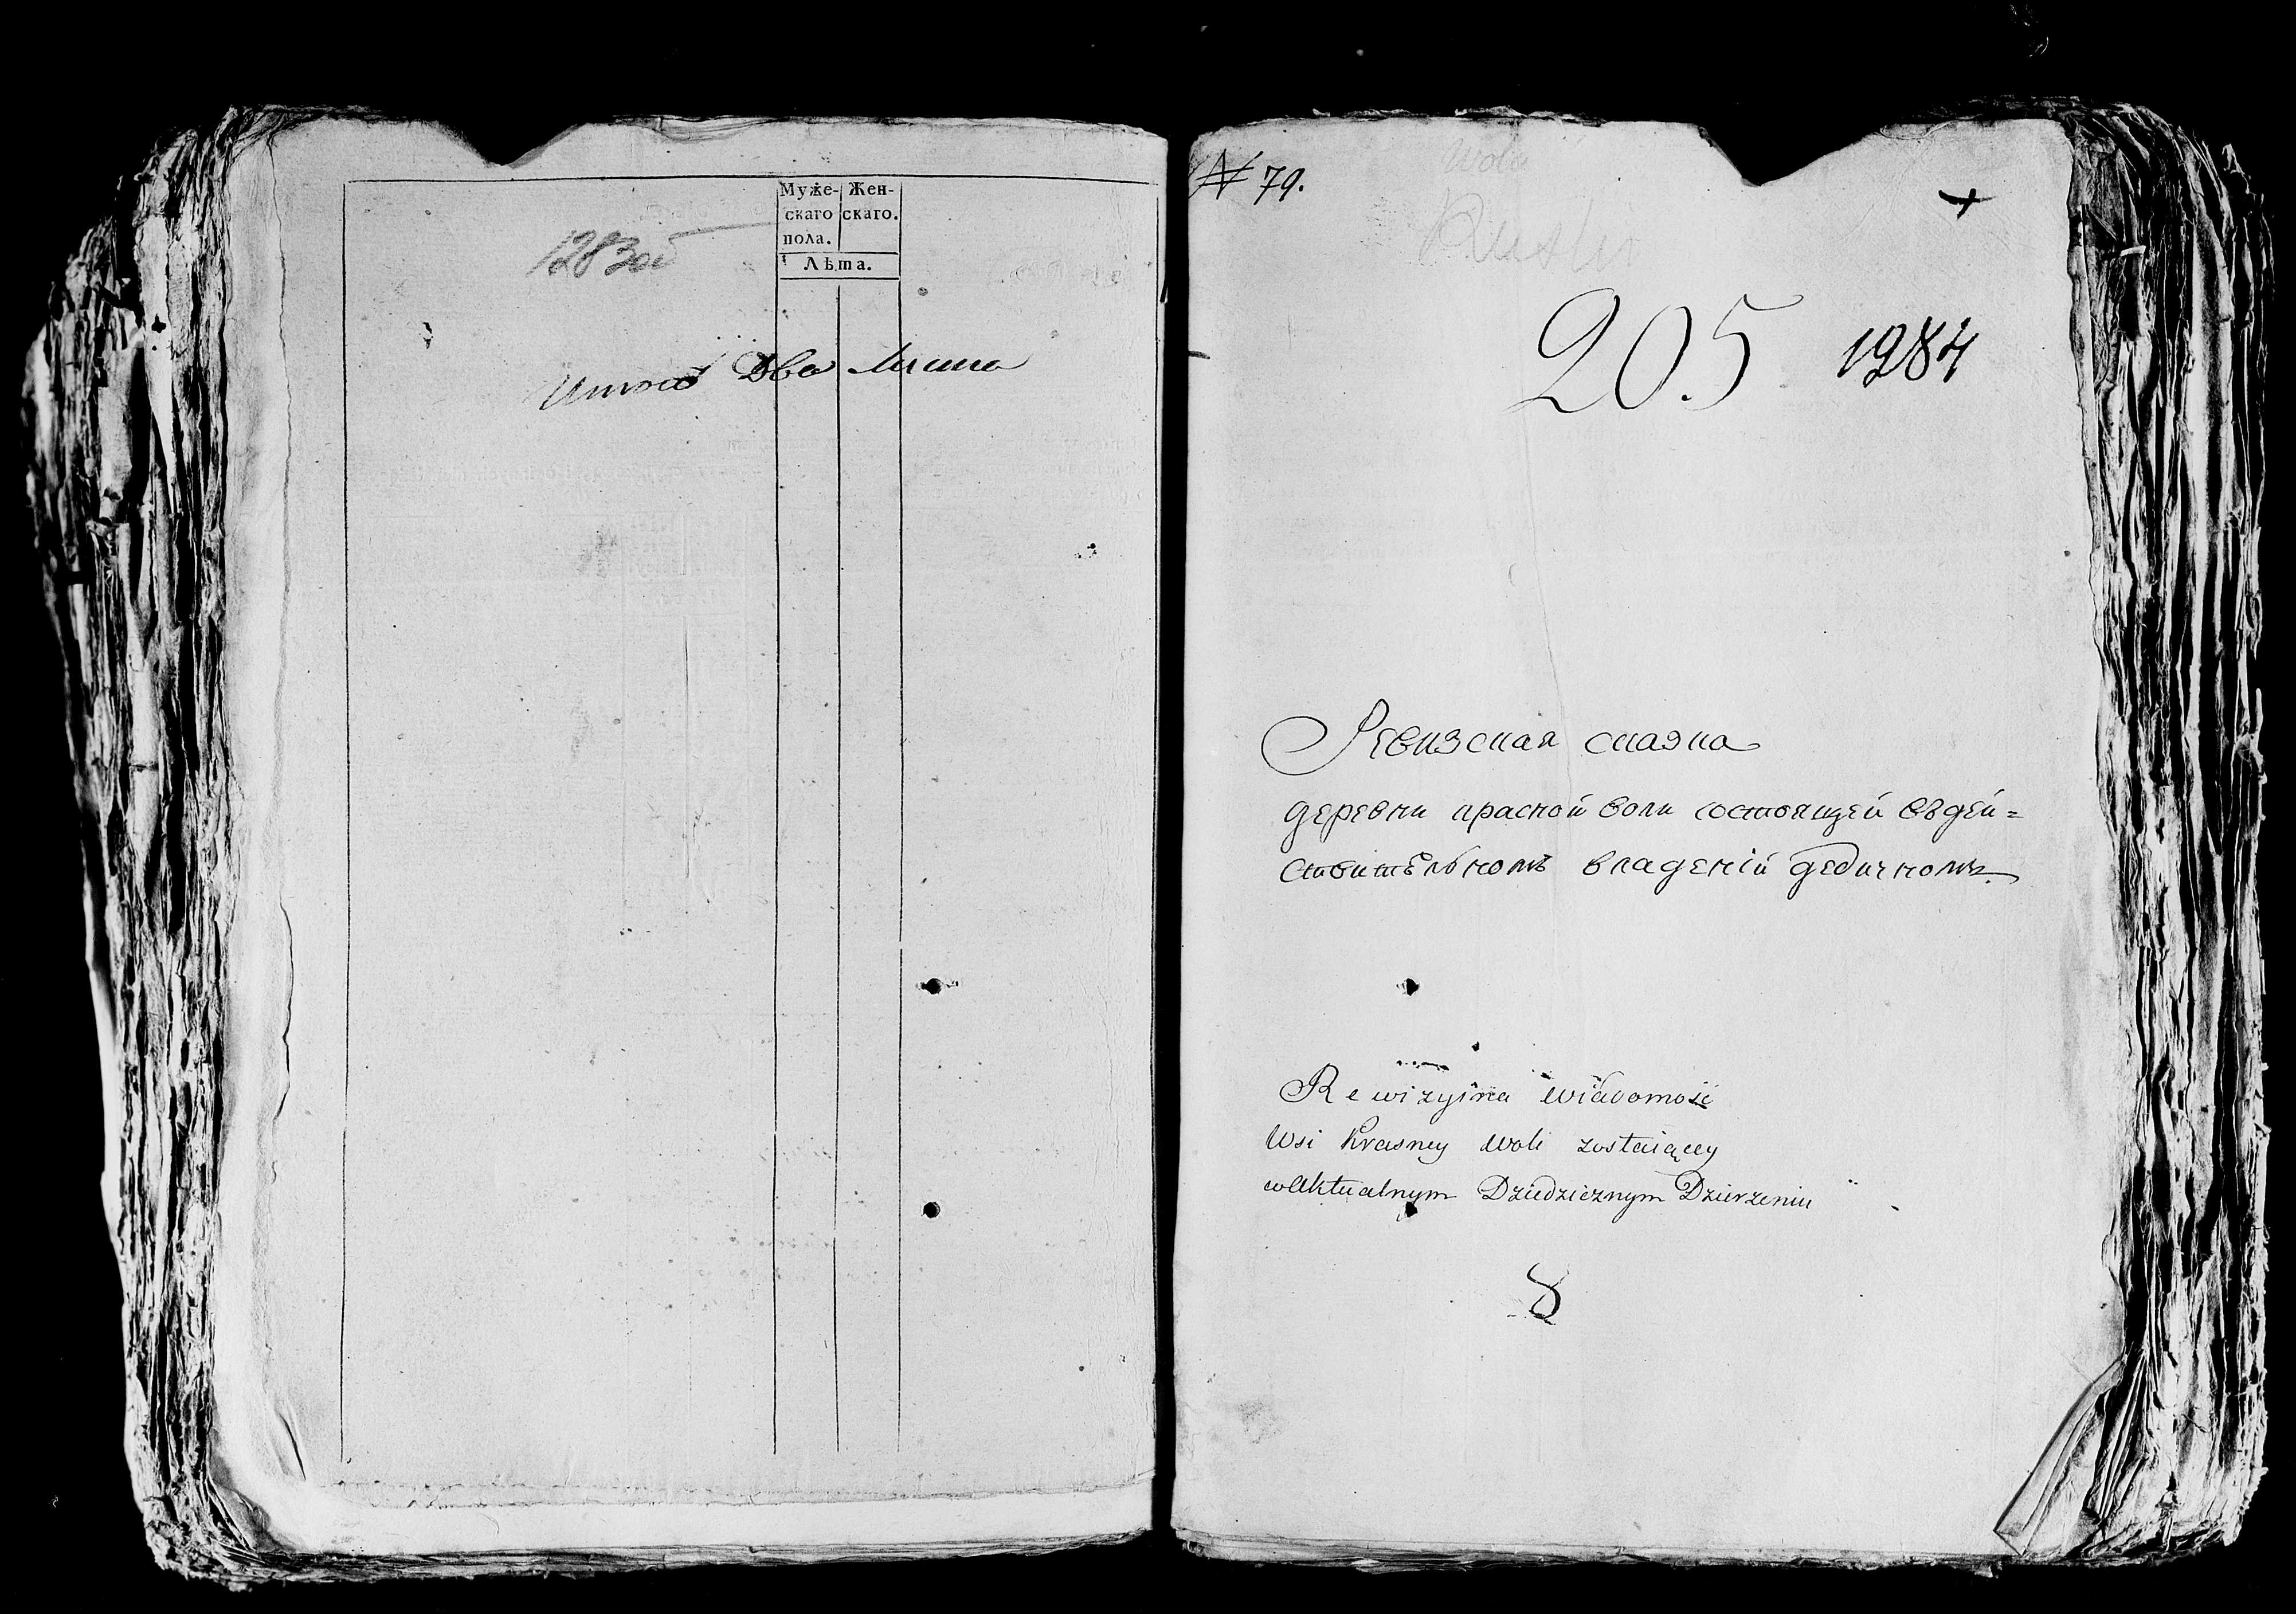 Муже- Жен-
скаго скаго.
пола.
Лѣта.
Итого Два листа
№ 79.
Wola
205 1984
Ревизская сказка
деревни красной воли состоящей въ дей=
ствительномъ владеній дедичномъ.
Rewizyina Wiadomość
Wsi Krasney Woli zostaiącey
w Aktualnym Dziedzicznym Dzierzeniu
8